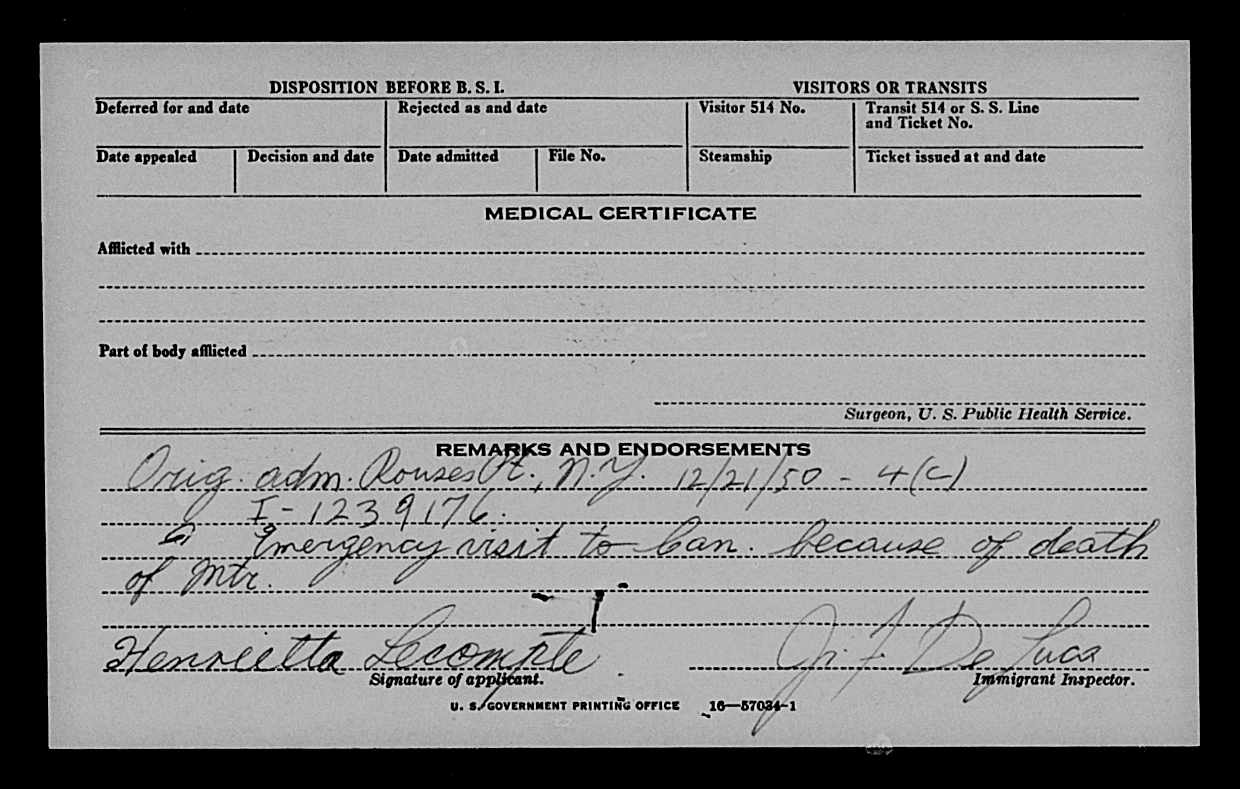 DISPOSITION BEFORE B. S. I. VISITORS OR TRANSITS
Deferred for and date Rejected as and date Visitor 514 No. Transit 514 or S. S. Line
and Ticket No.
Date appealed Decision and date Date admitted File No. Steamship Ticket issued at and date
MEDICAL CERTIFICATE
Afflicted with
Part of body afflicted
Surgeon, U. S. Public Health Service.
REMARKS AND ENDORSEMENTS
Orig. adm. Rouses Pt., N.Y. 12/21/50 - 4(c)
I-1239176.
Emergency visit to Can. because of death
of Mtr.
Henrietta Lecompte De Luca
Signature of applicant. Immigrant Inspector.
U. S. GOVERNMENT PRINTING OFFICE 16—57034-1